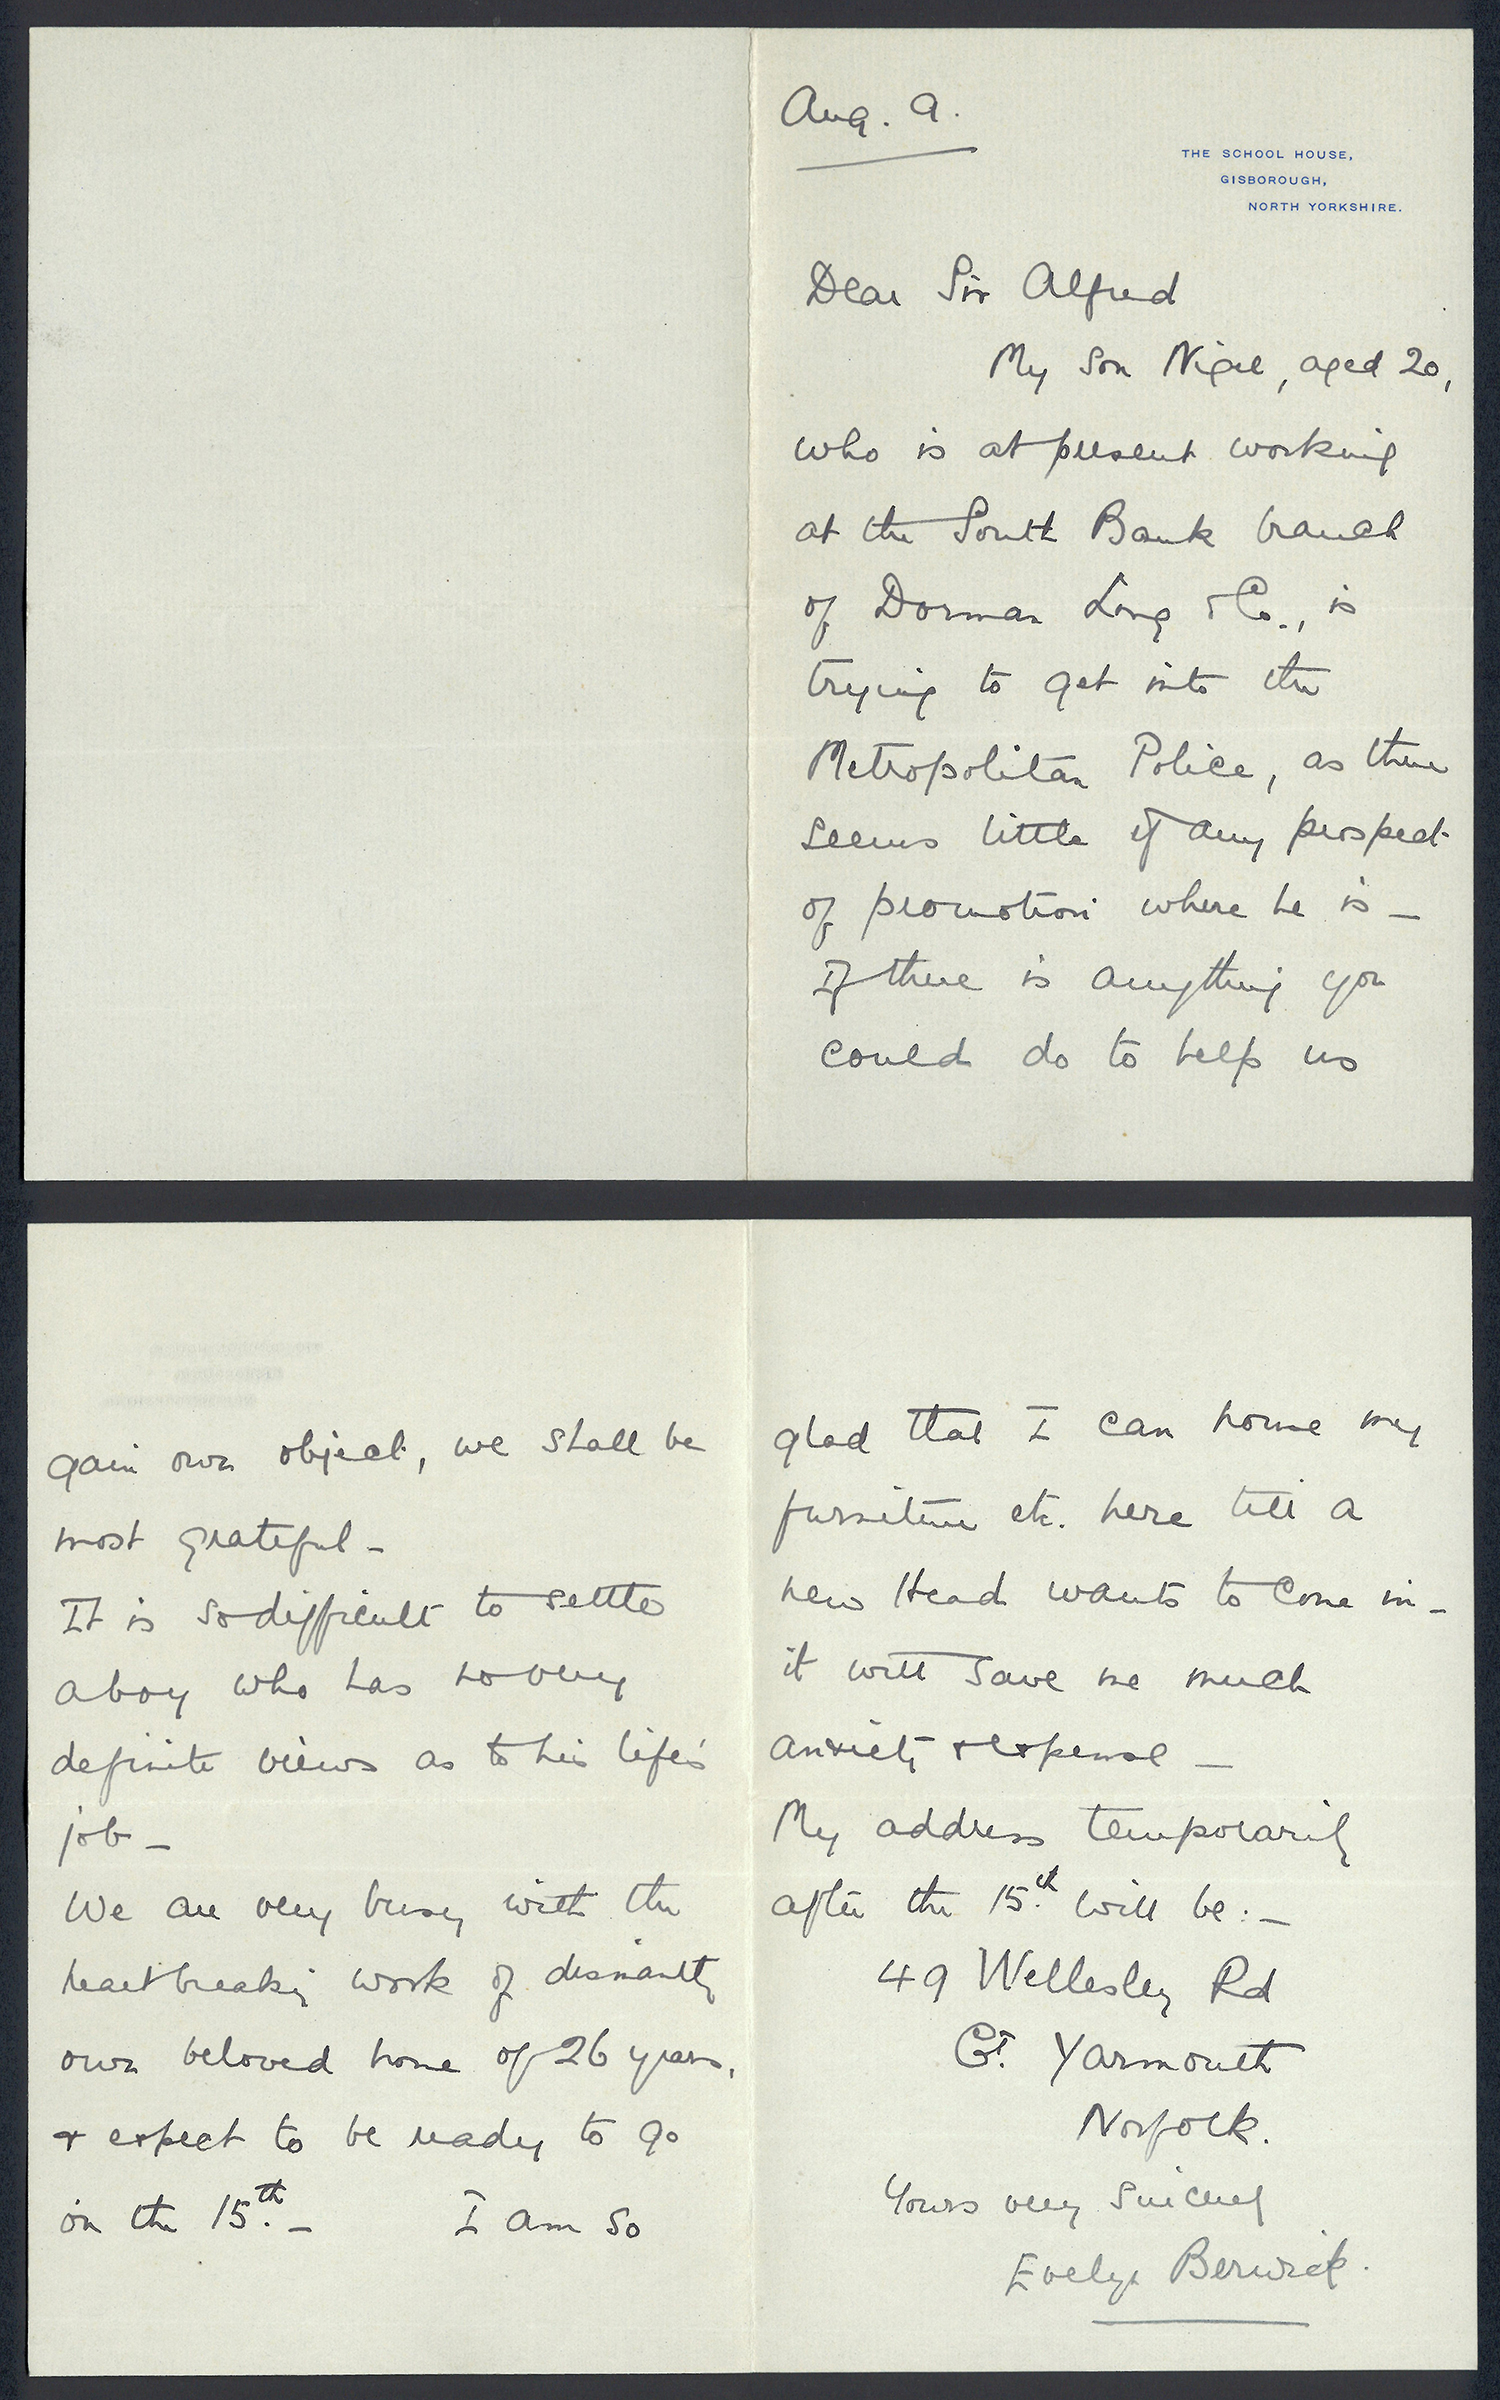 Aug. 9.
THE SCHOOL HOUSE,
GISBOROUGH,
NORTH YORKSHIRE.
Dear Sir Alfred
My son Nigel, aged 20,
who is at present working
at the South Bank branch
of Dorman Long & Co., is
trying to get into the
Metropolitan Police, as there
seems little if any prospect
of promotion where he is –
If there is anything you
could do to help us
gain our object, we shall be
most grateful –
It is so difficult to settle
a boy who has no very
definite views as to his life's
job –
We are very busy with the
heartbreaking work of dismantling
our beloved home of 26 years,
& expect to be ready to go
on the 15th. – I am so
glad that I can house my
furniture etc. here till a
new Head wants to come in –
it will save me much
anxiety & expense –
My address temporarily
after the 15th. will be: –
49 Wellesley Rd
Gt. Yarmouth
Norfolk.
Yours very sincerely
Evelyn Berwick.